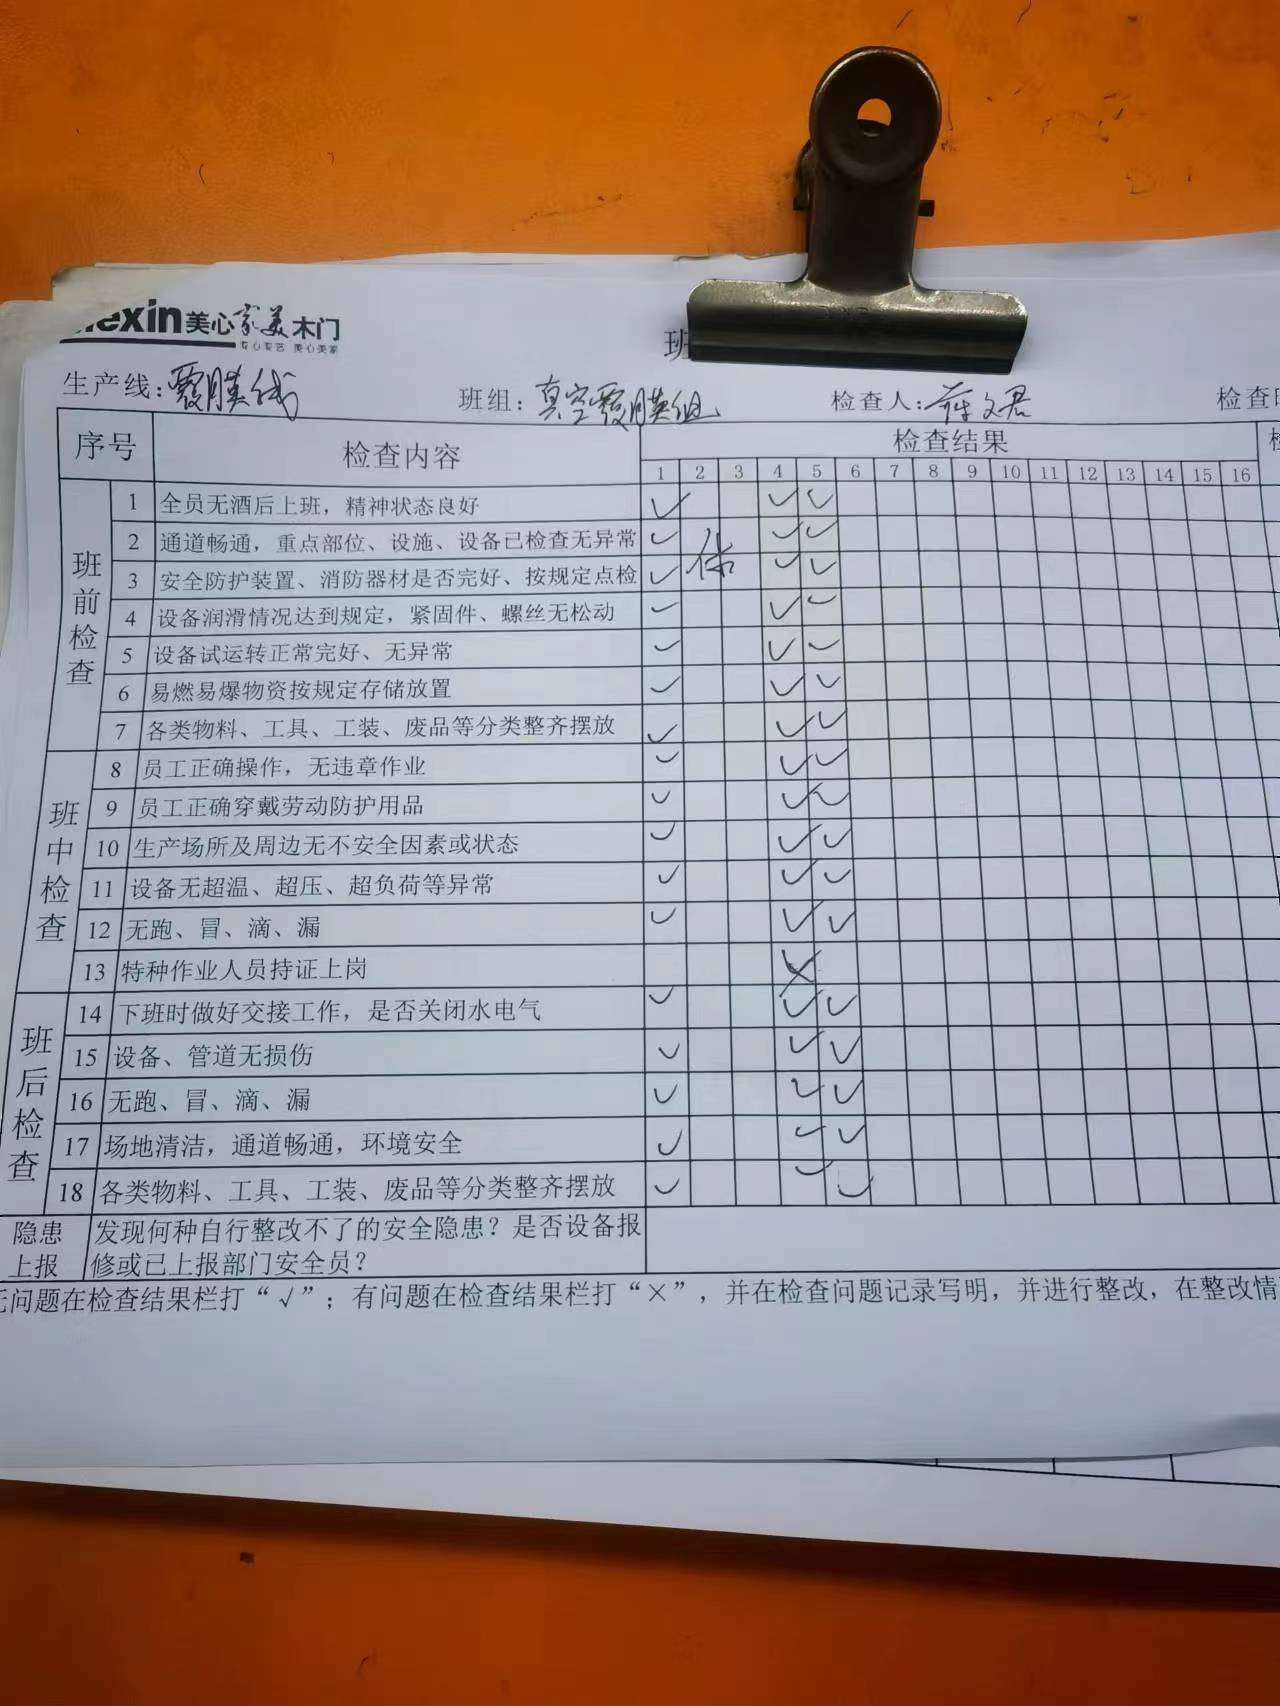 exin美心家美木门
专心专艺 美心美家
班
生产线：覆膜线 班组：真空覆膜组 检查人：蒋文君 检查
序号 检查内容 检查结果
1 2 3 4 5 6 7 8 9 10 11 12 13 14 15 16
班前检查
1 全员无酒后上班，精神状态良好 ✓ ✓ ✓
2 通道畅通，重点部位、设施、设备已检查无异常 ✓ 休 ✓ ✓
3 安全防护装置、消防器材是否完好、按规定点检 ✓ ✓ ✓
4 设备润滑情况达到规定，紧固件、螺丝无松动 ✓ ✓ ✓
5 设备试运转正常完好、无异常 ✓ ✓ ✓
6 易燃易爆物资按规定存储放置 ✓ ✓ ✓
7 各类物料、工具、工装、废品等分类整齐摆放 ✓ ✓ ✓
班中检查
8 员工正确操作，无违章作业 ✓ ✓ ✓
9 员工正确穿戴劳动防护用品 ✓ ✓ ✓
10 生产场所及周边无不安全因素或状态 ✓ ✓ ✓
11 设备无超温、超压、超负荷等异常 ✓ ✓ ✓
12 无跑、冒、滴、漏 ✓ ✓ ✓
13 特种作业人员持证上岗
班后检查
14 下班时做好交接工作，是否关闭水电气 ✓ ✓ ✓
15 设备、管道无损伤 ✓ ✓ ✓
16 无跑、冒、滴、漏 ✓ ✓ ✓
17 场地清洁，通道畅通，环境安全 ✓ ✓ ✓
18 各类物料、工具、工装、废品等分类整齐摆放 ✓ ✓ ✓
隐患上报 发现何种自行整改不了的安全隐患？是否设备报
修或已上报部门安全员？
无问题在检查结果栏打“√”；有问题在检查结果栏打“×”，并在检查问题记录写明，并进行整改，在整改情